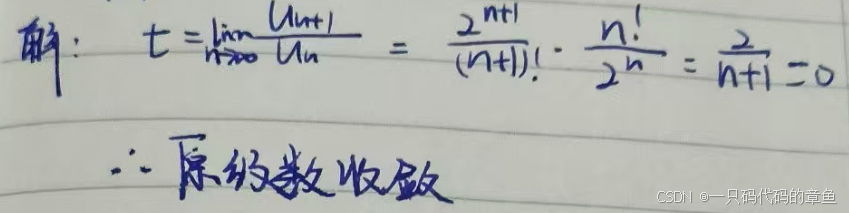 解: t = lim n→∞ Un+1/Un = 2^(n+1)/(n+1)! · n!/2^n = 2/(n+1) = 0
∴ 原级数收敛
CSDN @一只码代码的章鱼